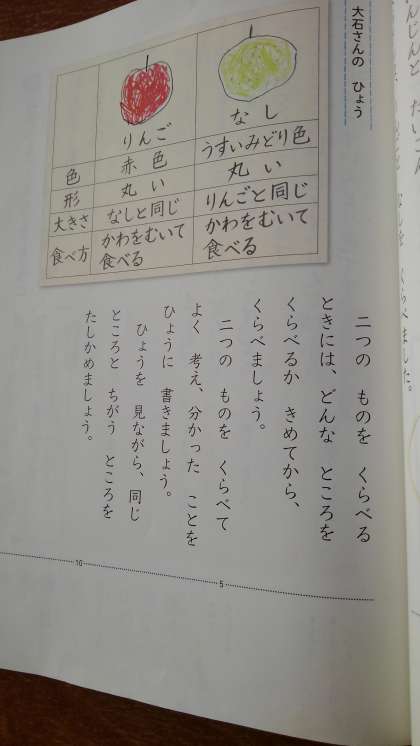 大石さんの　ひょう
りんご
なし
色
赤色
うすいみどり色
形
丸い
丸い
大きさ
なしと同じ
りんごと同じ
食べ方
かわをむいて
食べる
かわをむいて
食べる
二つの　ものを　くらべる
ときには、どんな　ところを
くらべるか　きめてから、
くらべましょう。
二つの　ものを　くらべて
よく　考え、分かった　ことを
ひょうに　書きましょう。
ひょうを　見ながら、同じ
ところと　ちがう　ところを
たしかめましょう。
5
10